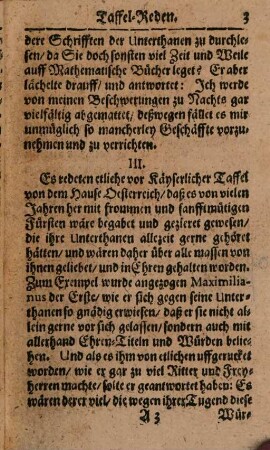 Taffel-Reden. 3
dere Schrifften der Unterthanen zu durchle-
sen/ da Sie doch sonsten viel Zeit und Weile
auff Mathematische Bücher leget? Er aber
lächelte drauff/ und antwortet: Ich werde
von meinen Beschwerungen zu Nachts gar
vielfältig abgemattet/ deßwegen fället es mir
unmüglich so mancherley Geschäffte vorzu-
nehmen und zu verrichten.
III.
Es redeten etliche vor Käyserlicher Taffel
von dem Hause Oesterreich/ daß es von vielen
Jahren her mit frommen und sanfftmütigen
Fürsten wäre begabet und gezieret gewesen/
die ihre Unterthanen allezeit gerne gehöret
hätten/ und wären daher über alle massen von
ihnen geliebet/ und in Ehren gehalten worden.
Zum Exempel wurde angezogen Maximilia-
nus der Erste/ wie er sich gegen seine Unter-
thanen so gnädig erwiesen/ daß er sie nicht al-
lein gerne vor sich gelassen/ sondern auch mit
allerhand Ehren-Titeln und Würden belie-
hen. Und als es ihm von etlichen uffgerucket
worden/ wie er gar zu viel Ritter und Frey-
herren machte/ solte er geantwortet haben: Es
wären derer viel/ die wegen ihrer Tugend diese
A 3 Wür-